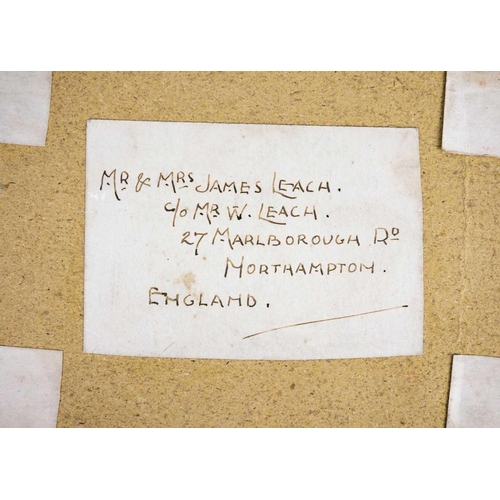 Mr & Mrs James Leach.
c/o Mr W. Leach.
27 Marlborough Rd
Northampton.
England.